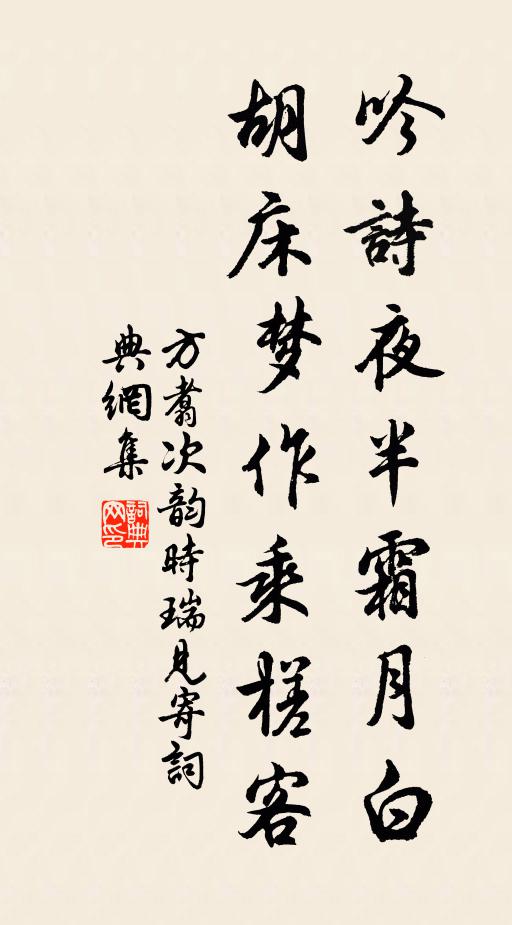 吟詩夜半霜月白
胡床梦作乘槎客
方翥次韵時瑞見寄詞
典網集
詞典網印